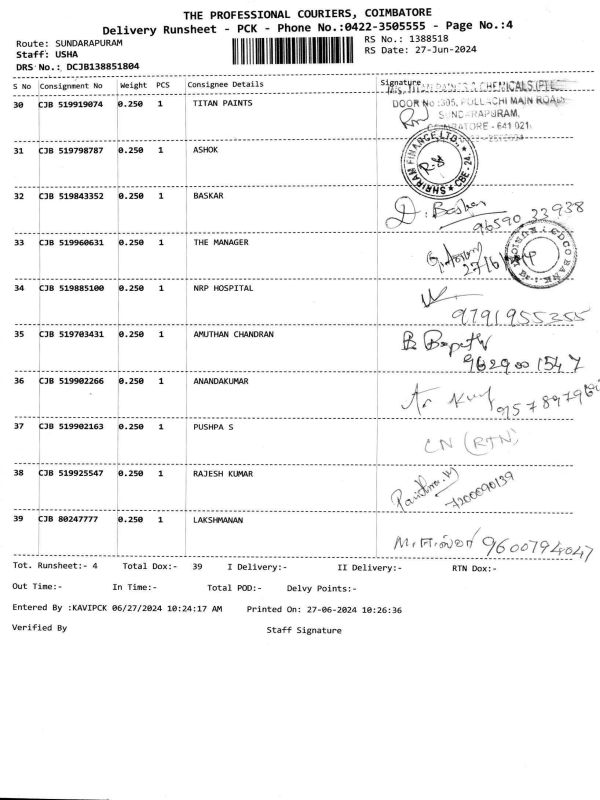 THE PROFESSIONAL COURIERS, COIMBATORE
Delivery Runsheet - PCK - Phone No.:0422-3505555 - Page No.:4
Route: SUNDARAPURAM
RS No.: 1388518
Staff: USHA
RS Date: 27-Jun-2024
DRS No.: DCJB138851804
S No Consignment No Weight PCS Consignee Details Signature
30 CJB 519919074 0.250 1 TITAN PAINTS
DOOR No :305, POLLACHI MAIN ROAD
SUNDARAPURAM,
COIMBATORE - 641 021
31 CJB 519798787 0.250 1 ASHOK
SHRIRAM FINANCE LTD. * CBE - 24 *
32 CJB 519843352 0.250 1 BASKAR
D. Baskar
96590 23938
33 CJB 519960631 0.250 1 THE MANAGER
34 CJB 519885100 0.250 1 NRP HOSPITAL
9791955355
35 CJB 519703431 0.250 1 AMUTHAN CHANDRAN
9629001547
36 CJB 519902266 0.250 1 ANANDAKUMAR
37 CJB 519902163 0.250 1 PUSHPA S
CN (RTN)
38 CJB 519925547 0.250 1 RAJESH KUMAR
7200090139
39 CJB 80247777 0.250 1 LAKSHMANAN
9600794047
Tot. Runsheet:- 4 Total Dox:- 39 I Delivery:- II Delivery:- RTN Dox:-
Out Time:- In Time:- Total POD:- Delvy Points:-
Entered By :KAVIPCK 06/27/2024 10:24:17 AM Printed On: 27-06-2024 10:26:36
Verified By Staff Signature